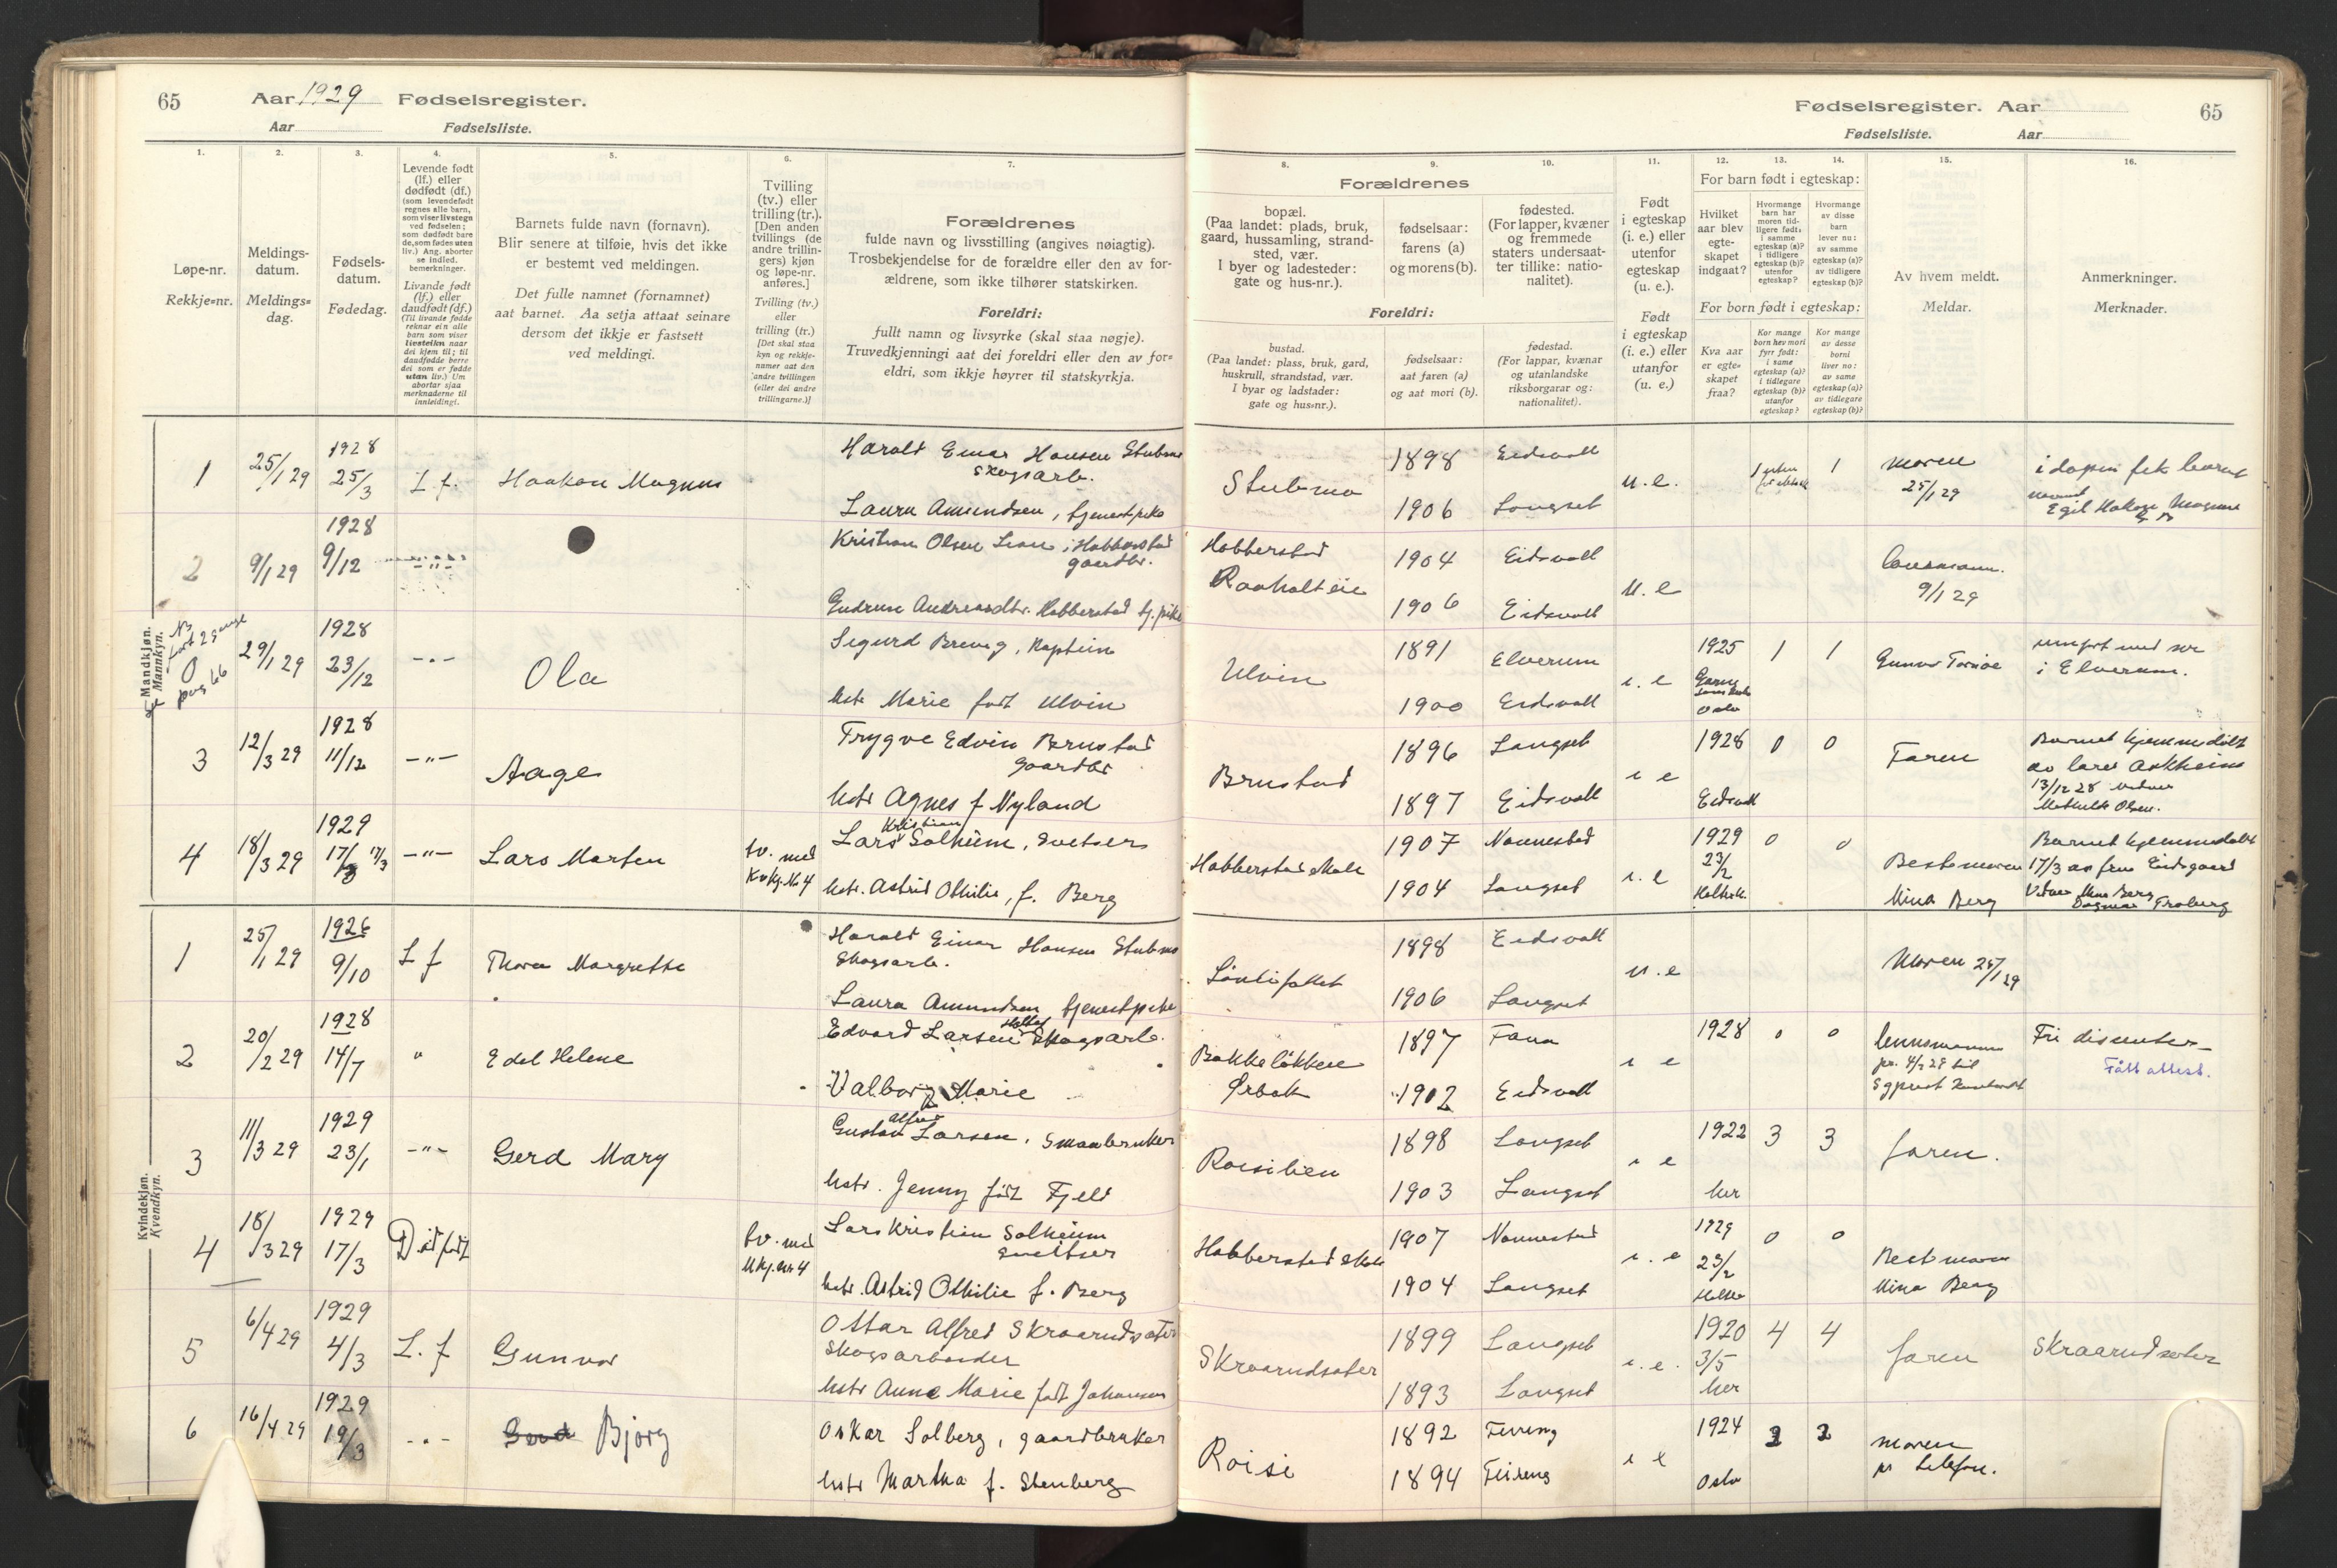 65
Aar 1929 Fødselsregister.
Aar Fødselsliste.
1.
2.
3.
4.
5.
6.
7.
Løpe-nr.
Rekkje-nr.
Meldings-
datum.
Meldings-
dag.
Fødsels-
datum.
Fødedag.
Levende født
(lf.) eller
dødfødt (df.)
(som levendefødt
regnes alle barn,
som viser livstegn
ved fødselen;
som dødfødt bare
de, som fødes uten
liv.) Ang. aborter
se indled.
bemerkninger.
Livande født
(lf.) eller
daudfødt (df.)
(Til livande fødde
reknar ein alle
barn som viser
livsteikn naar
dei kjem til; til
daudfødde berre
dei som er fødde
utan liv.) Um
abortar sjaa
merknaderne til
innleidingi.
Barnets fulde navn (fornavn).
Blir senere at tilføie, hvis det ikke
er bestemt ved meldingen.
Det fulle namnet (fornamnet)
aat barnet. Aa setja attaat seinare
dersom det ikkje er fastsett
ved meldingi.
Tvilling
(tv.) eller
trilling (tr.).
[Den anden
tvillings (de
andre trillin-
gers) kjøn
og løpe-nr.
anføres.]
Tvilling (tv.)
eller
trilling (tr.)
[Det skal staa
kyn og rekkje-
numer aat den
andre tvillingen
(eller dei andre
trillingarne.)]
Forældrenes
fulde navn og livsstilling (angives nøiagtig).
Trosbekjendelse for de forældre eller den av for-
ældrene, som ikke tilhører statskirken.
Foreldri:
fullt namn og livsyrke (skal staa nøgje).
Truvedkjenningi aat dei foreldri eller den av for-
eldri, som ikkje høyrer til statskyrkja.
Mandkjøn.
Mannkyn.
1
25/1 29
1928
25/3
L f.
Haakon Magnus
Harald Einar Hansen Stubmo
skogsarb.
Laura Amundsen, tjenestpike
2
9/1 29
1928
9/12
-"-
Kristian Olsen
Habberstad
gaardbr.
Gudrun Andreasdtr. Habberstad tj.pike
NB
ført 2 gange
0
pag 66
29/1 29
1928
23/12
-"-
Ola
Sigurd Brevig, Kaptein
hstr Marie født Ulvin
3
12/3 29
1928
11/12
-"-
Aage
Trygve Edvin Brustad
gaardbr
hstr Agnes f Nyland
4
18/3 29
1929
17/3 17/3
-"-
Lars Morten
tv. med
Kvkj. Nr 4
Kristian
Lars Solheim, sveitser
hstr. Astrid Othilie, f. Berg
Kvindekjøn.
Kvendkyn.
1
25/1 29
1926
9/10
L f
Thora Margrethe
Harald Einar Hansen Stubmo
Skogsarb.
Laura Amundsen tjenestpike
2
20/2 29
1928
14/7
"
Edel Helene
Edvard Larsen Skogsarb.
Valborg Marie
3
11/3 29
1929
23/1
-"-
Gerd Mary
Alfred
Gustav Larsen, Smaabruker
hstr. Jenny født Fjeld
4
18/3 29
1929
17/3
Dødfødt
tv. med
Mkj. nr 4
Lars Kristian Solheim
sveitser
hstr. Astrid Othilie f. Berg
5
6/4 29
1929
4/3
L. f
Gunvor
Ottar Alfred Skraarudsæter
Skogsarbeider
hstr Anne Marie født Johansen
6
16/4 29
1929
19/3
-"-
Gerd Bjørg
Oskar Solberg, gaardbruker
hstr Martha f. Stenberg
Fødselsregister. Aar
65
Fødselsliste. Aar
8.
9.
10.
11.
12.
13.
14.
15.
16.
Forældrenes
bopæl.
(Paa landet: plads, bruk,
gaard, hussamling, strand-
sted, vær.
I byer og ladesteder:
gate og hus-nr.).
fødselsaar:
farens (a)
og morens (b).
fødested.
(For lapper, kvæner
og fremmede
staters undersaat-
ter tillike: natio-
nalitet).
Foreldri:
bustad.
(Paa landet: plass, bruk, gard,
huskrull, strandstad, vær.
I byar og ladstader:
gate og hus-nr.).
fødselsaar:
aat faren (a)
og aat mori (b).
fødestad.
(For lappar, kvænar
og utanlandske
riksborgarar og:
nationalitet).
Født
i egteskap
(i. e.) eller
utenfor
egteskap
(u. e.).
Født
i egteskap
(i. e.) eller
utanfor
(u. e.)
For barn født i egteskap:
Hvilket
aar blev
egte-
skapet
indgaat?
Hvormange
barn har
moren tid-
ligere født:
i samme
egteskap (a)?
i tidligere
egteskap (b)?
utenfor
egteskap?
Hvormange
av disse
barn
lever nu:
av samme
egteskap (a)?
av tidligere
egteskap (b)?
For born født i egteskap:
Kva aar
er egte-
skapet
fraa?
Kor mange
born hev mori
fyrr født:
i same
egteskap (a)?
i tidlegare
egteskap (b)?
utanfor
egteskap?
Kor mange
av desse
borni
liver no:
av same
egteskap (a)?
av tidlegare
egteskap (b)?
Av hvem meldt.
Meldar.
Anmerkninger.
Merknader.
Stubmo
1898
1906
Eidsvoll
Langset
u.e.
1
1
Moren
25/1 29
i dåpen fik barnet
navnet
Egil Hakon Magnus
Habberstad
Raaholt eie
1904
1906
Eidsvoll
Eidsvoll
u. e
lensmann.
9/1 29
Ulvin
1891
1900
Elverum
Eidsvoll
i. e
1925
Oslo
1
1
Gunvor Tornøe
i Elverum.
Brustad
1896
1897
Langset
Eidsvoll
i e
1928
Eidsvoll
0
0
Faren
Barnet hjemmedøbt
av
13/12 28
Mathilde Olsen.
Habberstad skole
1907
1904
Nannestad
Langset
i. e
1929
23/2
0
0
Bestemoren
Mina Berg
Barnet hjemmedøbt
17/3 av fru Eidsgaard
Vidner Mina Berg
Dagmar Froberg
1898
1906
Eidsvoll
Langset
u.e
Moren 25/1 29
Bakkeløkken
Ørbæk
1897
1902
Fana
Eidsvoll
i e
1928
0
0
lensmannen
Fri dissenter
Fått attest.
Roisilien
1898
1903
Langset
Langset
i e
1922
her
3
3
faren.
Habberstad skole
1907
1904
Nannestad
Langset
i. e
1929
23/2
0
0
Bestemoren
Mina Berg
Skraarudsæter
1899
1893
Langset
Langset
i. e.
1920
3/5
her
4
4
faren
Skraarudseter
Roisi
1892
1894
Feiring
Feiring
i e
1924
Oslo
2
2
moren
pr telefon.